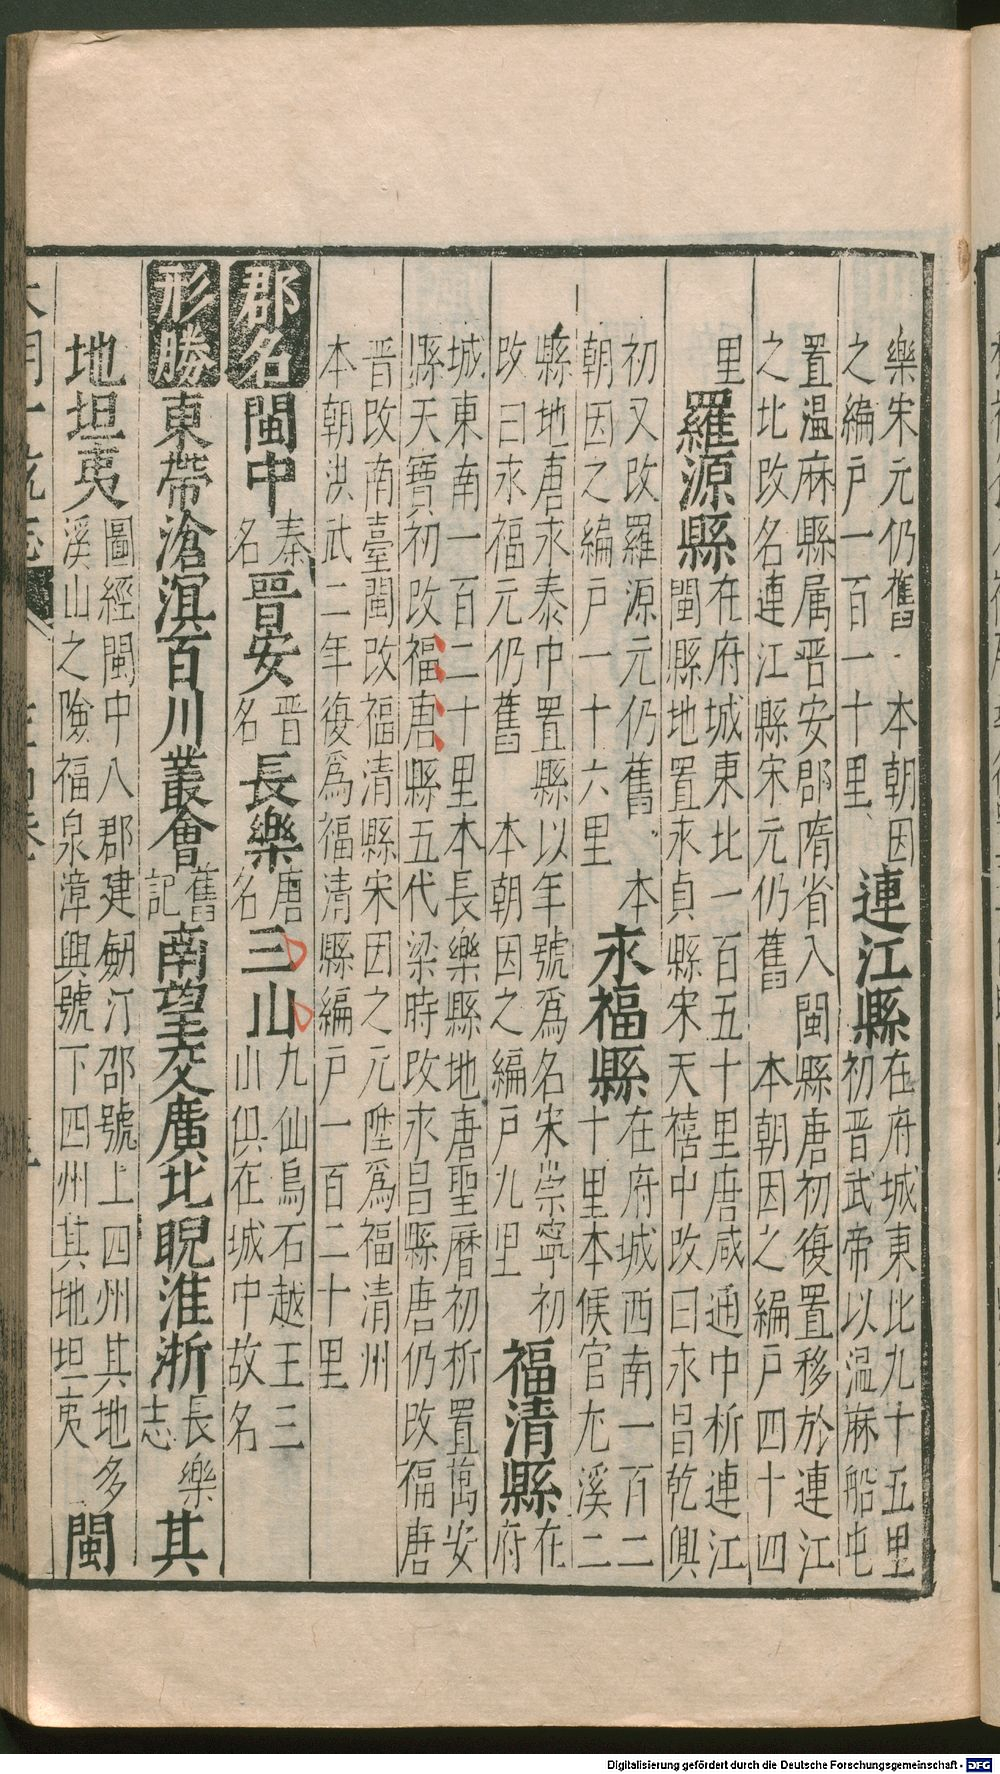 樂宋元仍舊 本朝因
之編戶一百一十里
連江縣
在府城東北九十五里
初晋武帝以温麻船屯
置温麻縣属晋安郡隋省入閩縣唐初復置移於連江
之北改名連江縣宋元仍舊 本朝因之編戶四十四
里
羅源縣
在府城東北一百五十里唐咸通中析連江
閩縣地置永貞縣宋天禧中改曰永昌乾興
初又改羅源元仍舊 本
朝因之編戶一十六里
永福縣
在府城西南一百二
十里本候官尤溪二
縣地唐永泰中置縣以年號爲名宋崇寧初
改曰永福元仍舊 本朝因之編戶九里
福清縣
在
府
城東南一百二十里本長樂縣地唐聖曆初析置萬安
縣天寶初改福唐縣五代梁時改永昌縣唐仍改福唐
晋改南臺閩改福清縣宋因之元陞爲福清州
本朝洪武二年復爲福清縣編戶一百二十里
郡名
閩中
秦
名
晋安
晋
名
長樂
唐
名
三山
九仙烏石越王三
山俱在城中故名
形勝
東帶滄溟百川叢會
舊
記
南望交廣北睨淮浙
長樂
志
其
地坦夷
圖經閩中八郡建劒汀邵號上四州其地多
溪山之險福泉漳興號下四州其地坦夷
閩
Digitalisierung gefördert durch die Deutsche Forschungsgemeinschaft - DFG